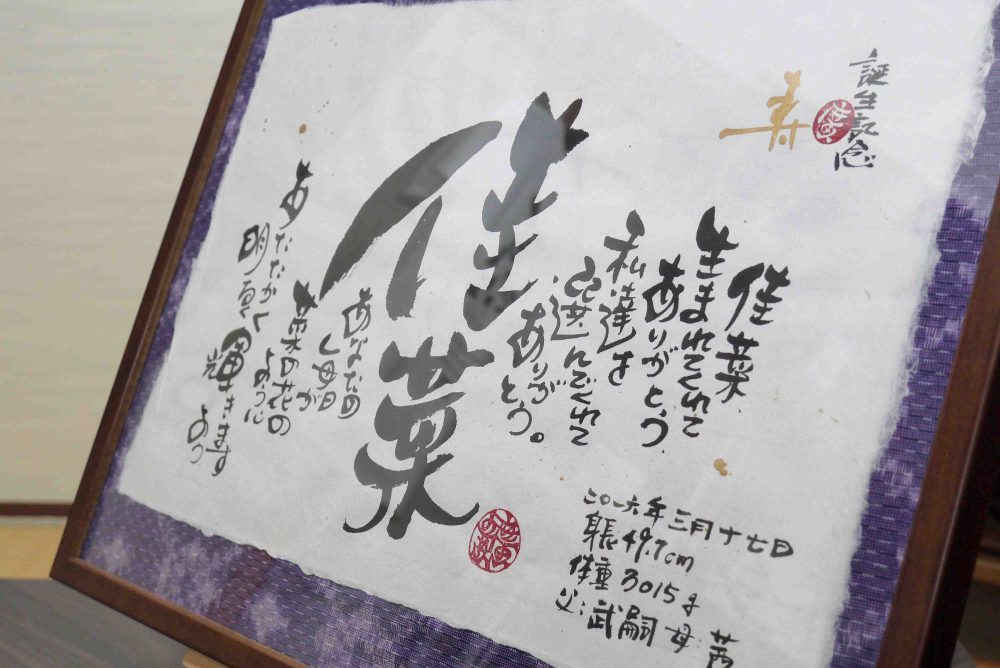 誕生記念
寿
佳菜、
生まれてくれて
ありがとう
私達を
選んでくれて
ありがとう。
佳菜
あなたの
毎日が
菜の花の
ような
あたたかく
明るく
輝きます
よう
二〇一六年三月十七日
身長49.7cm
体重3015g
父:武嗣 母:茜